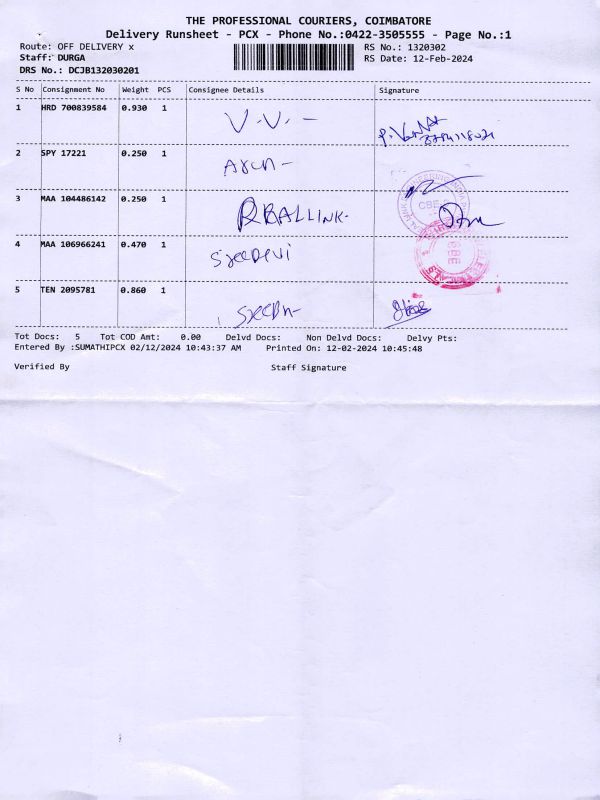 THE PROFESSIONAL COURIERS, COIMBATORE
Delivery Runsheet - PCX - Phone No.:0422-3505555 - Page No.:1
Route: OFF DELIVERY x RS No.: 1320302
Staff: DURGA RS Date: 12-Feb-2024
DRS No.: DCJB132030201
S No Consignment No Weight PCS Consignee Details Signature
1 HRD 700839584 0.930 1
V.V. -
2 SPY 17221 0.250 1
3 MAA 104486142 0.250 1
CBE
RBALLINK.
4 MAA 106966241 0.470 1
SreeDevi
5 TEN 2095781 0.860 1
Tot Docs: 5 Tot COD Amt: 0.00 Delvd Docs: Non Delvd Docs: Delvy Pts:
Entered By :SUMATHIPCX 02/12/2024 10:43:37 AM Printed On: 12-02-2024 10:45:48
Verified By Staff Signature